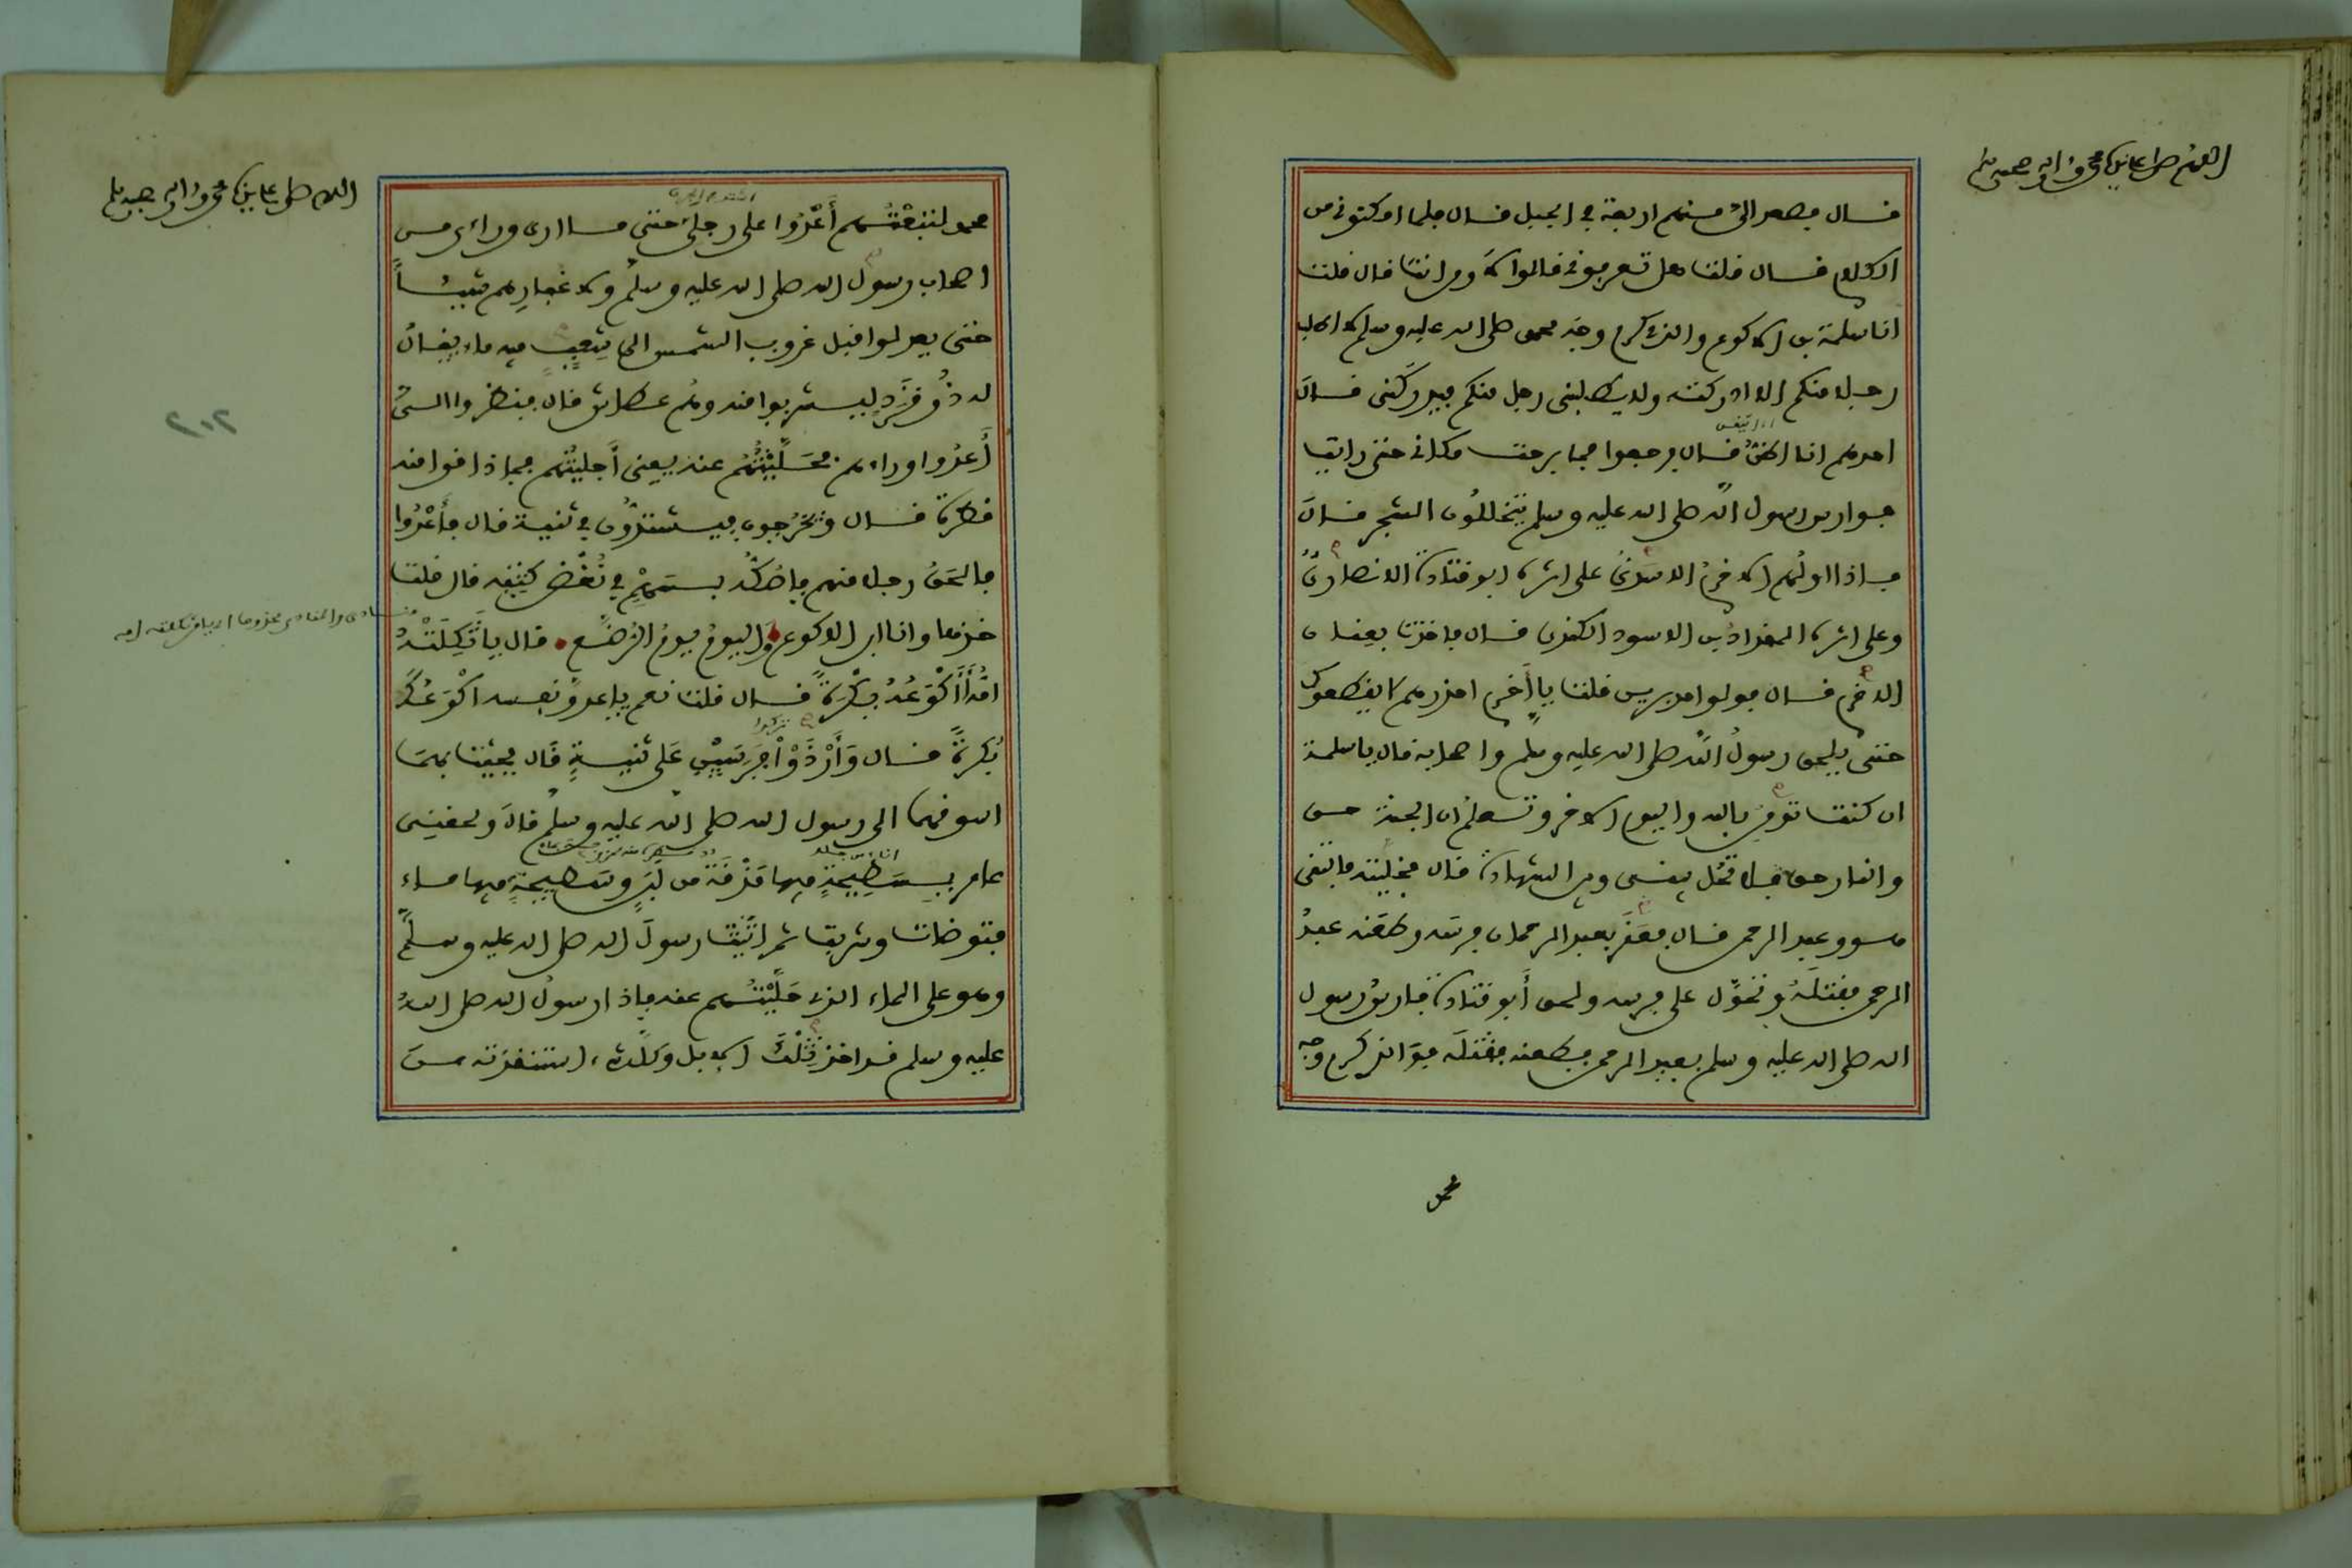 اللهم صل على سيدنا محمد وءاله وصحبه وسلم
قال فصعد الي منهم اربعة في الجبل قال فلما امكنوني من
الكلام قال قلت هل تعرفوني قالوا لا ومن انت قال قلت
انا سلمة بن الاكوع والذي كرم وجه محمد صلى الله عليه وسلم لا اطلب
رجلا منكم الا ادركته ولا يطلبني رجل منكم فيدركني قال
احدهم انا اظن قال فرجعوا فما برحت مكاني حتى رايت
فوارس رسول الله صلى الله عليه وسلم يتخللون الشجر قال
فاذا اولهم الاخرم الاسدي على اثره ابو قتادة الانصاري
وعلى اثره المقداد بن الاسود الكندي قال فاخذت بعنان
الاخرم قال فولوا مدبرين قلت يا أخرم احذرهم لا يقطعوك
حتى يلحق رسول الله صلى الله عليه وسلم واصحابه قال يا سلمة
ان كنت تؤمن بالله واليوم الاخر وتعلم ان الجنة حق
والنار حق فلا تحل بيني وبين الشهادة قال فخليته فالتقى
هو وعبد الرحمن قال فعقر بعبد الرحمان فرسه وطعنه عبد
الرحمن فقتله وتحول على فرسه ولحق أبو قتادة فارس رسول
الله صلى الله عليه وسلم بعبد الرحمن فطعنه فقتله فوالذي كرم وجه
محمد
اللهم صل على سيدنا محمد وءاله وصحبه وسلم
محمد لتبعتهم أعدوا على رجلي حتى ما ارى وراءي من
اصحاب رسول الله صلى الله عليه وسلم ولا غبارهم شيئا
حتى يعدلوا قبل غروب الشمس الى شعب فيه ماء يقال
له ذو قرد ليشربوا منه وهم عطاش قال فنظروا الي
٢٠٢
أعدوا وراءهم فحليتهم عنه يعني أجليتهم فما ذاقوا منه
قطرة قال ويخرجون فيشتدون في ثنية قال فأعدوا
فالحق رجلا منهم فاصكه بسهم في نغض كتفه قال قلت
خذها وانا ابن الاكوع واليوم يوم الرضع قال يا ثكلته
امه أأكوعه بكرة قال قلت نعم يا عدو نفسه اكوعك
بكرة قال وأرذوا فرسين على ثنية قال فجئت بهما
اسوقهما الى رسول الله صلى الله عليه وسلم قال ولحقني
عامر بسطيحة فيها مذقة من لبن وسطيحة فيها ماء
فتوضات وشربت ثم اتيت رسول الله صلى الله عليه وسلم
وهو على الماء الذي حليتهم عنه فاذا رسول الله صلى الله
عليه وسلم قد اخذ تلك الابل وكل شيء استنقذته من